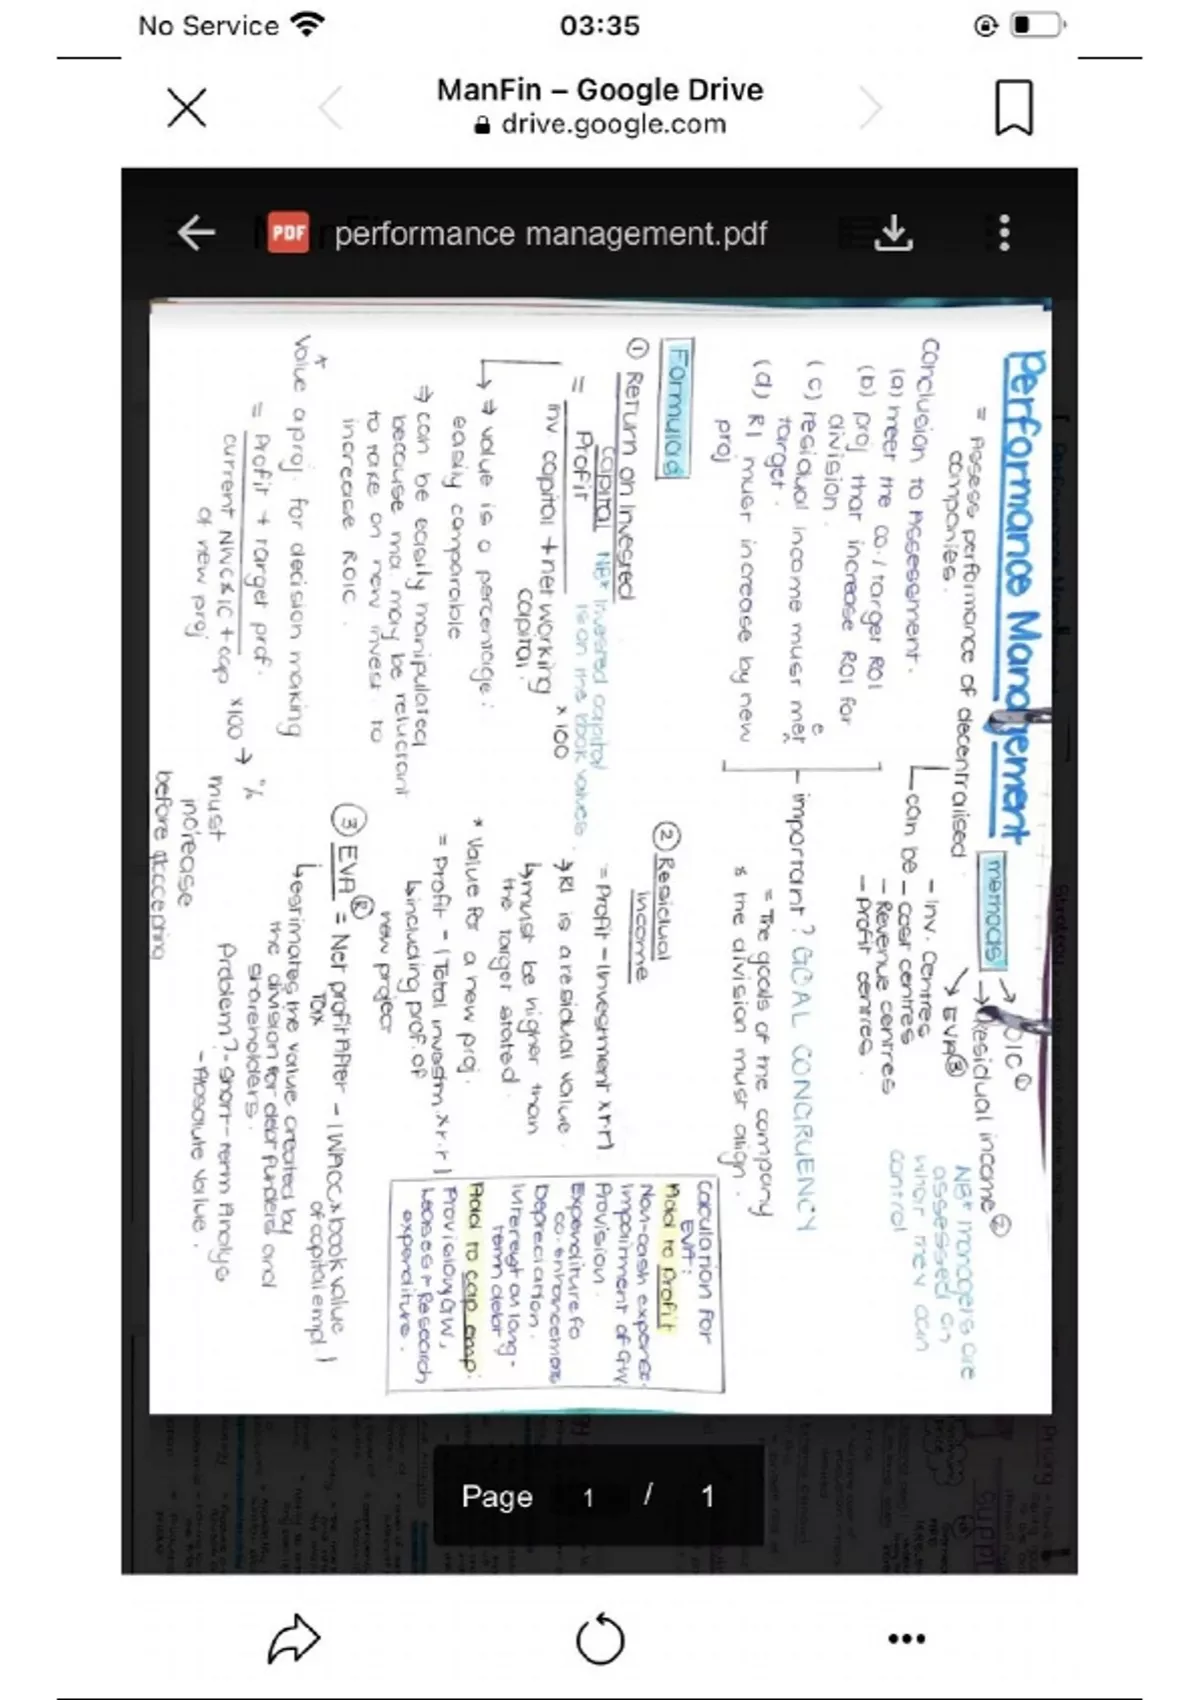 No Service
03:35
ManFin – Google Drive
drive.google.com
PDF
performance management.pdf
Performance Management
= Assess performance of decentralised
companies.
methods
→ Residual income ②
→ EVA ③
can be
- Inv. Centres
- cost centres
- Revenue centres
- profit centres.
NB* managers are
assessed on
what they can
control
Conclusion to Assessment.
(a) meet the co./target ROI
(b) proj that increase ROI for
division.
(c) residual income must met
e
target.
(d) RI must increase by new
proj
important? GOAL CONGRUENCY
= The goals of the company
& the division must align.
Formulas
① Return on Invested
Capital
NB* Invested capital
is on the book values.
= Profit
inv. capital + net working
capital.
x 100
→ value is a percentage;
easily comparable
→ can be easily manipulated
because ma. may be reluctant
to take on new invest to
increase ROIC.
* Value a proj. for decision making
= Profit + target prof.
current NWC & IC + cap
of new proj
x100 → %
must
increase
before accepting
② Residual
income
= Profit - (Investment x rr)
→ RI is a residual value.
↳ must be higher than
the target stated.
* Value for a new proj.
= Profit - (Total investm. x r.r)
↳ including prof. of
new project
③ EVA ® = Net profit After - (WACC x book value
Tax
of capital empl.)
↳ estimates the value created by
the division for debt funders and
shareholders.
Problem? - short-term Analys
- Absolute value.
Calculation for
EVA:
Add to profit
Non-cash expense.
Impairment of GW.
Provision.
Expenditure fo
co. enhancement
Depreciation.
Interest on long-
term debt
Add to cap emp:
Provision, GW,
Leases + Research
expenditure.
Page 1 / 1